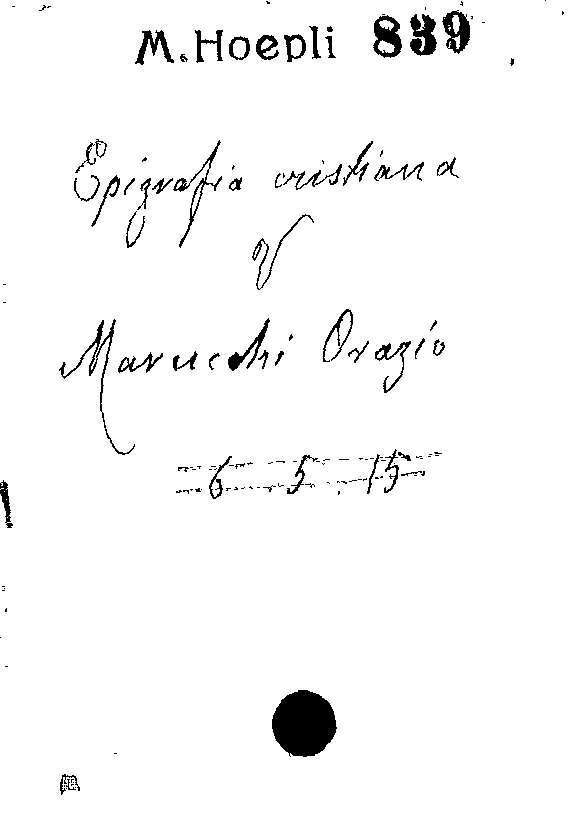 M. Hoepli 839
Epigrafia cristiana
V
Marucchi Orazio
6 . 5 . 15